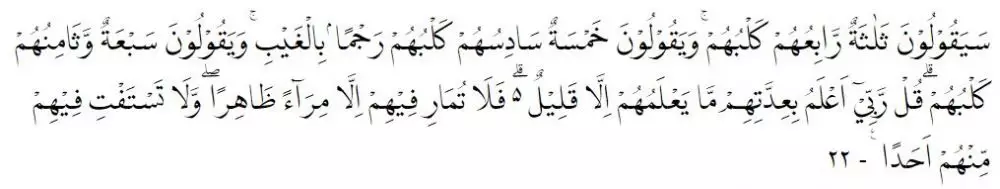 سَيَقُوْلُوْنَ ثَلٰثَةٌ رَّابِعُهُمْ كَلْبُهُمْۚ وَيَقُوْلُوْنَ خَمْسَةٌ سَادِسُهُمْ كَلْبُهُمْ رَجْمًاۢ بِالْغَيْبِۚ وَيَقُوْلُوْنَ سَبْعَةٌ وَّثَامِنُهُمْ
كَلْبُهُمْۗ قُلْ رَّبِّيْٓ اَعْلَمُ بِعِدَّتِهِمْ مَّا يَعْلَمُهُمْ اِلَّا قَلِيْلٌ ەۗ فَلَا تُمَارِ فِيْهِمْ اِلَّا مِرَاۤءً ظَاهِرًاۖ وَّلَا تَسْتَفْتِ فِيْهِمْ
مِّنْهُمْ اَحَدًا ࣖ - ٢٢